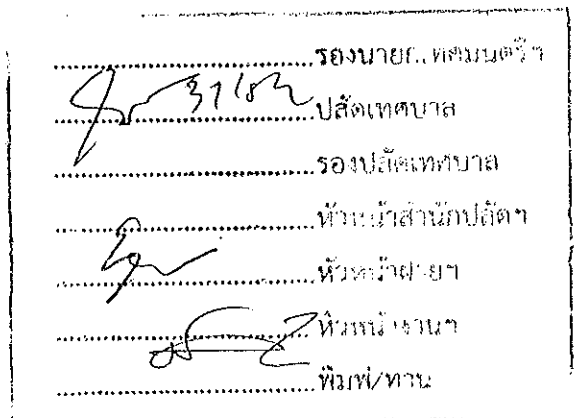 ....................รองนายก..เทศมนตรีฯ
....................ปลัดเทศบาล
....................รองปลัดเทศบาล
....................หัวหน้าสำนักปลัดฯ
....................หัวหน้าฝ่ายฯ
....................หัวหน้างานฯ
....................พิมพ์/ทาน